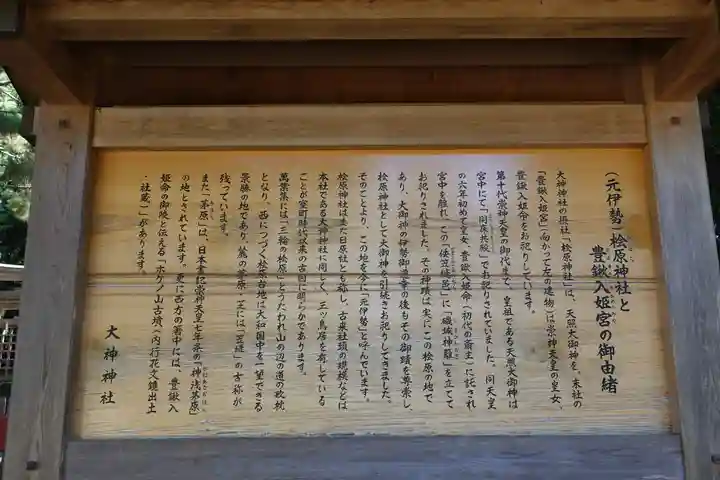 (元伊勢)桧原神社と
豊鍬入姫宮の御由緒
大神神社の摂社「桧原神社」は、天照大御神を、末社の
「豊鍬入姫宮」(向かって左の建物)は崇神天皇の皇女、
豊鍬入姫命をお祀りしています。
第十代崇神天皇の御代まで、皇祖である天照大御神は
宮中にて「同床共殿」でお祀りされていました。同天皇
の六年初めて皇女、豊鍬入姫命(初代の斎主)に託され
宮中を離れ、この「倭笠縫邑」に「磯城神籬」を立てて
お祀りされました。その神蹟は実にこの桧原の地で
あり、大御神の伊勢御遷幸の後もその御蹟を尊崇し、
桧原神社として大御神を引続きお祀りしてきました。
そのことより、この地を今に「元伊勢」と呼んでいます。
桧原神社はまた日原社とも称し、古来社頭の規模などは
本社である大神神社に同じく、三ツ鳥居を有している
ことが室町時代以来の古図に明らかであります。
萬葉集には「三輪の桧原」とうたわれ山の辺の道の歌枕
となり、西につづく桧原台地は大和国中を一望できる
景勝の地であり、麓の茅原・芝には「笠縫」の古称が
残っています。
また「茅原」は、日本書紀崇神天皇七年条の「神浅茅原」
の地とされています。更に西方の箸中には、豊鍬入
姫命の御陵と伝える「ホケノ山古墳」(内行花文鏡出土
・社蔵)があります。
大神神社